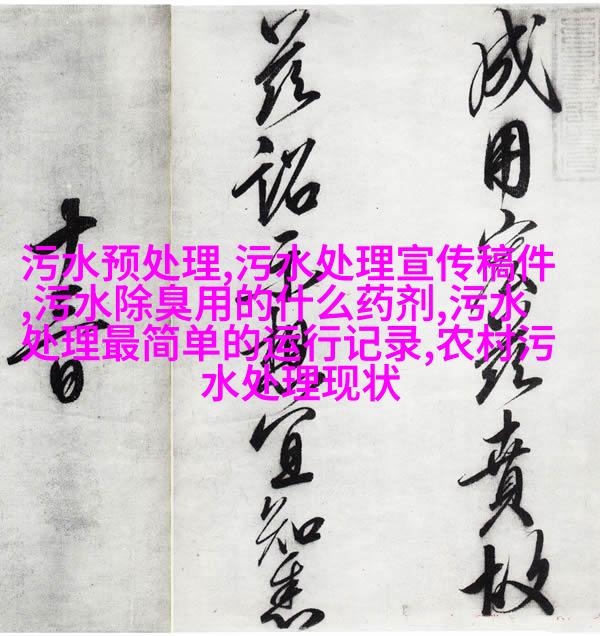 污水预处理,污水处理宣传稿件
,污水除臭用的什么药剂,污水
处理最简单的运行记录,农村污
水处理现状
成用賁故
兹詔宜知悉
十日